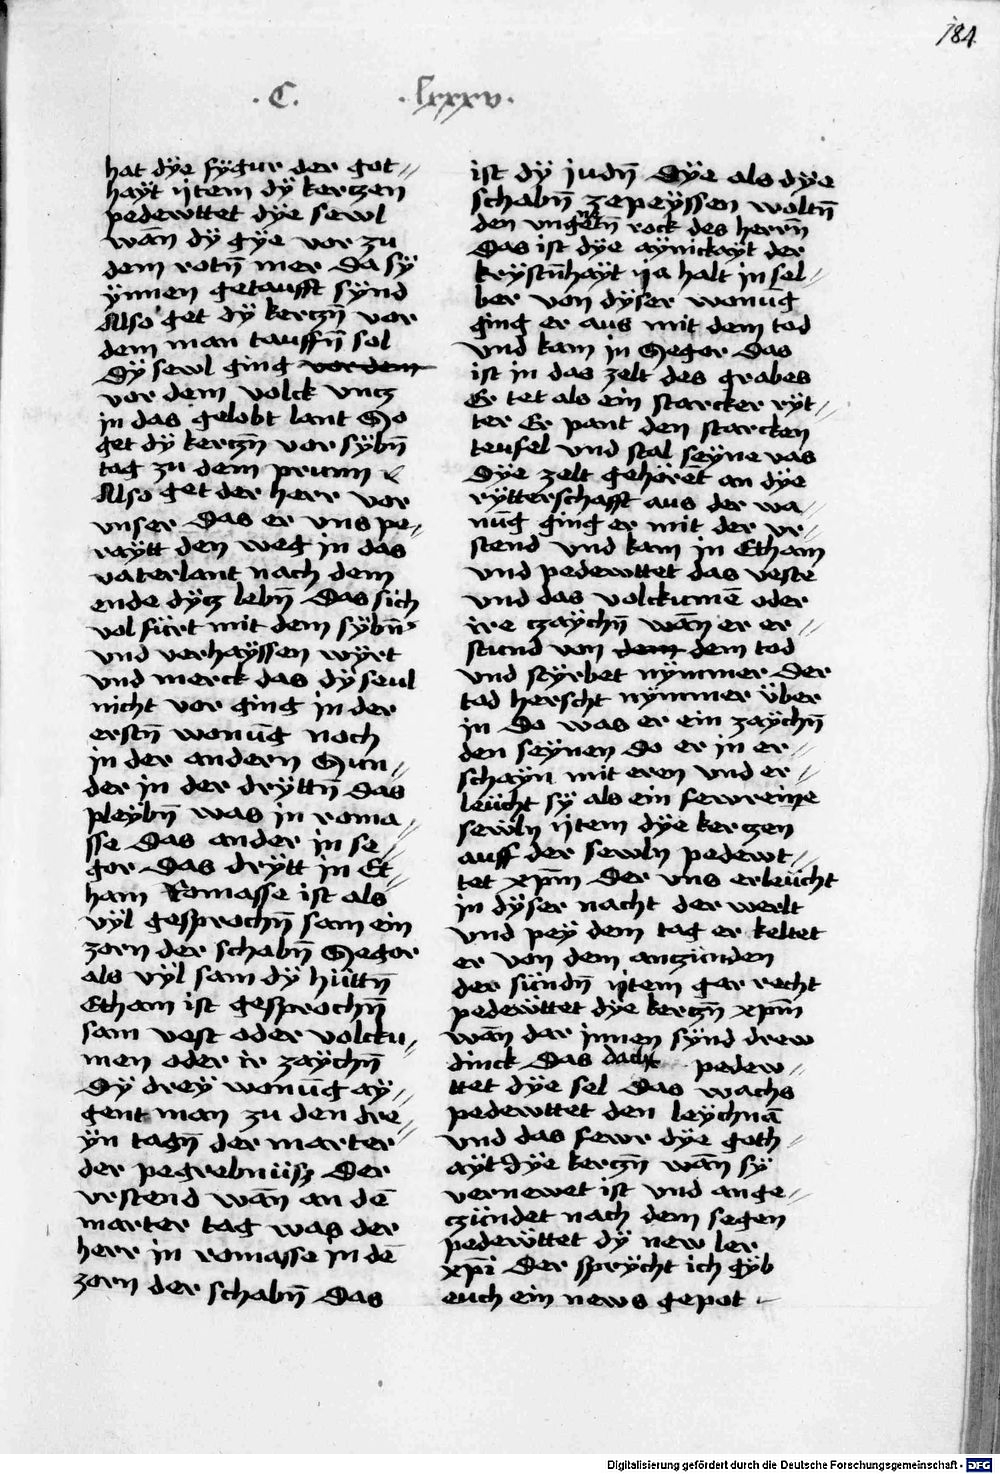 184
.C. .lxxxv.
hat dÿe fÿgur der got=
haÿt ijtem dÿ kerczen
pedewttet dÿe sewl
wān dÿ gÿe vor zu
dem rotn̄ mer Da sÿ
ÿnnen getaufft sÿnd
Also get dÿ kerczn̄ vor
dem man tauffn̄ sol
Dÿ sewl ging vor dem
vor dem volck vncz
in das gelobt lant So
get dÿ kerczn̄ vor sÿbn̄
tag zu dem prunn
Also get der herr vor
vnser Das er vns pe=
raÿtt den weg in das
vaterlant nach dem
ende dÿcz lebn̄ Das sich
volfürt mit dem sÿbn̄
vnd verhaÿssen wÿrt
vnd merck das dÿ seul
nicht vor ging in der
erstn̄ wonūg noch
in der andern Sun=
der in der drÿttn̄ das
pleÿbn̄ was in roma=
sse Das ander in se=
gor Das drÿtt in Et=
ham Romasse ist als
vÿl gesprochn̄ sam ein
zorn der schabn̄ Segor
als vÿl sam dÿ hüttn̄
Etham ist gesprochn̄
sam vest oder volcku=
men oder ir zaÿchn̄
Dÿ dreÿ wonūg aÿ=
gent man zu den dre=
ÿn tagn̄ der marter
der pegrebnüsz Der
vrstend wān an dē
marter tag was der
herr in romasse in dē
zorn der schabn̄ Das
ist dÿ judn̄ Dÿe als dÿe
schabn̄ zepeÿssen woltn̄
den vngetn̄ rock des herrn̄
Das ist dÿe aÿnickaÿt der
krÿstn̄haÿt ija halt in sel=
ber von dÿser wonūg
ging er aus mit dem tod
vnd kam in Segor Das
ist in das zelt des grabes
Er tet als ein starcker rÿt=
ter Er pant den starcken
teufel vnd stal seÿne vas
Dÿe zelt gehörēt an dÿe
rÿtterschafft aus der wa=
nūg ging er mit der vr=
stend vnd kam in Etham
vnd pedewttet das veste
vnd das volckumē oder
ire czaÿchn̄ wān er er=
stund von dem dem tod
vnd stÿrbet nÿmmer Der
tod herscht nÿmmer über
in Do was er ein zaÿchn̄
den seÿnen Do er in er=
schaÿn mit eren vnd er=
leücht sÿ als ein fewreine
sewln ijtem dÿe kerczen
auff der sewln pedewt=
tet xp̄m Der vns erleücht
in dÿser nacht der werlt
vnd peÿ dem tag er keltet
er von dem anczünden
der sündn̄ ijtem gar recht
pedewttet dÿe kerczn̄ xp̄m
wān dar innen sÿnd drew
dinck Das dacht pedew=
ttet dÿe sel Das wachs
pedewttet den leÿchnā
vnd das fewr dÿe goth=
aÿt Dÿe kerczn̄ wān sÿ
vernewet ist vnd ange=
czündet nach dem segen
pedewttet dÿ new ler
xp̄i Der sprÿcht ich gÿb
euch ein news gepot
Digitalisierung gefördert durch die Deutsche Forschungsgemeinschaft - DFG